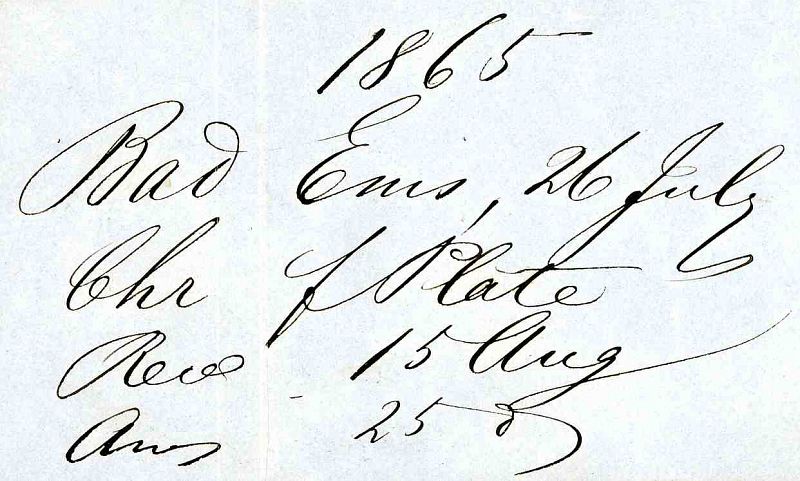 1865
Bad Ems, 26 July
Chr f Plate
Rece 15 Aug
Ans 25 d